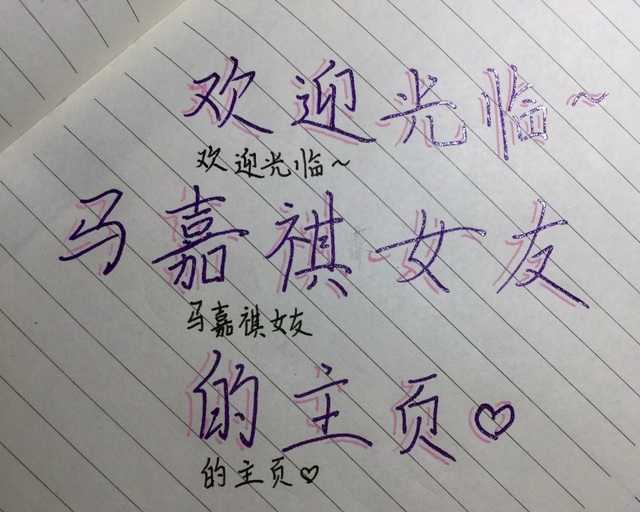 欢迎光临~
欢迎光临~
马嘉祺女友
马嘉祺女友
的主页♡
的主页♡